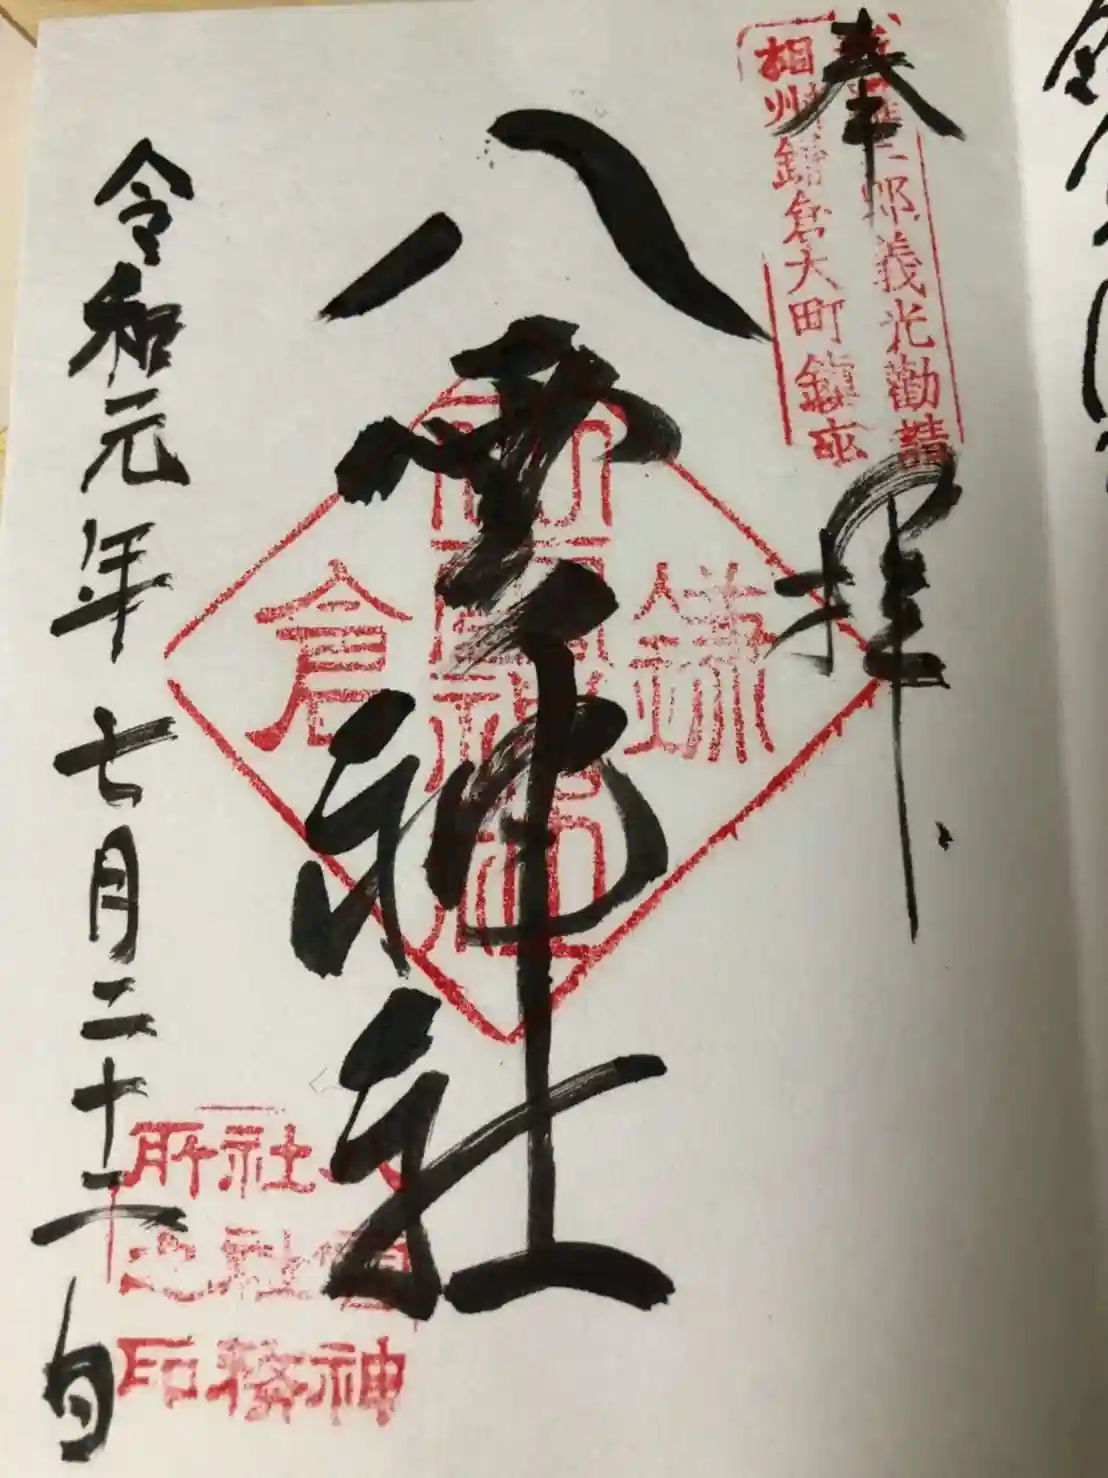 奉拝
新羅三郎義光勸請
相州鎌倉大町鎮座
八雲神社
鎌倉
令和元年七月二十二日
八雲神
社社務
所之印